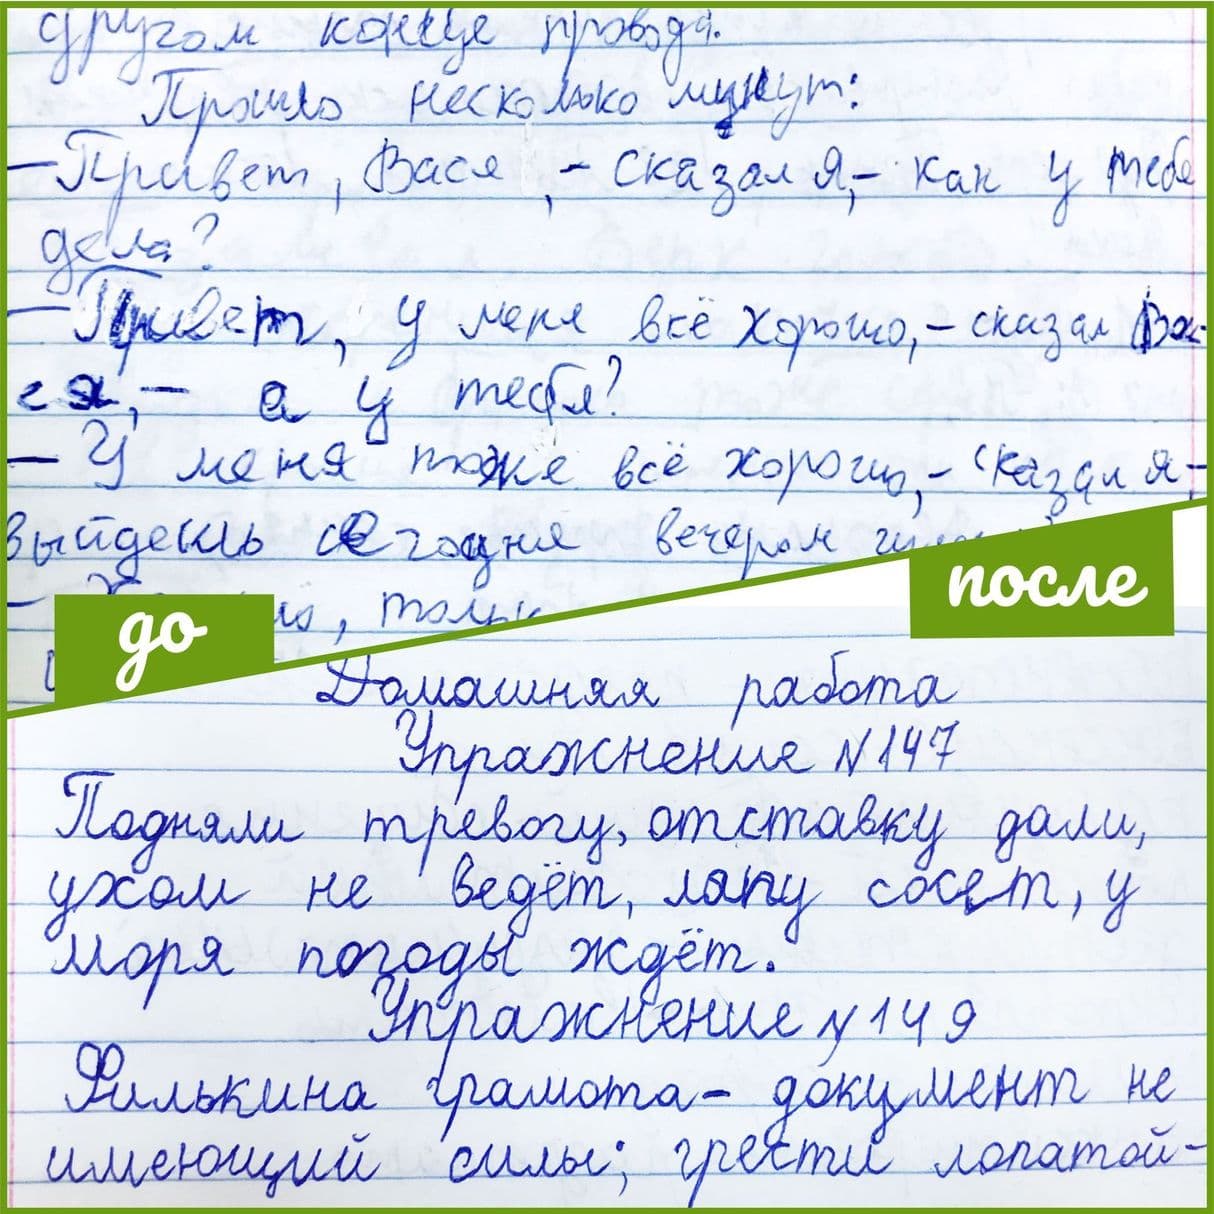 другом конце провода.
Прошло несколько минут:
– Привет, Вася, – сказал я, – как у тебя
дела?
– Привет, у меня всё хорошо, – сказал Ва-
ся, – а у тебя?
– У меня тоже всё хорошо, – сказал я, –
Выйдешь сегодня вечером
до
после
Домашняя работа
Упражнение №147
Подняли тревогу, отставку дали,
ухом не ведёт, лапу сосет, у
моря погоды ждёт.
Упражнение №149
Филькина грамота – документ не
имеющий силы; грести лопатой –